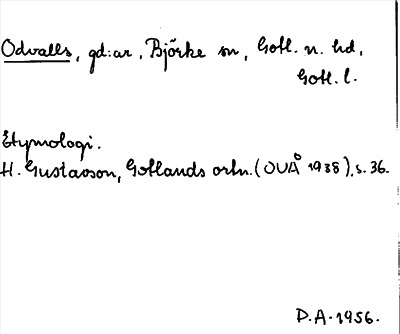 Odvalls, gd:ar, Björke sn, Gotl. n. hd,
Gotl. l.
Etymologi.
H. Gustavson, Gotlands ortn. (OUÅ 1938), s. 36.
D.A. 1956.